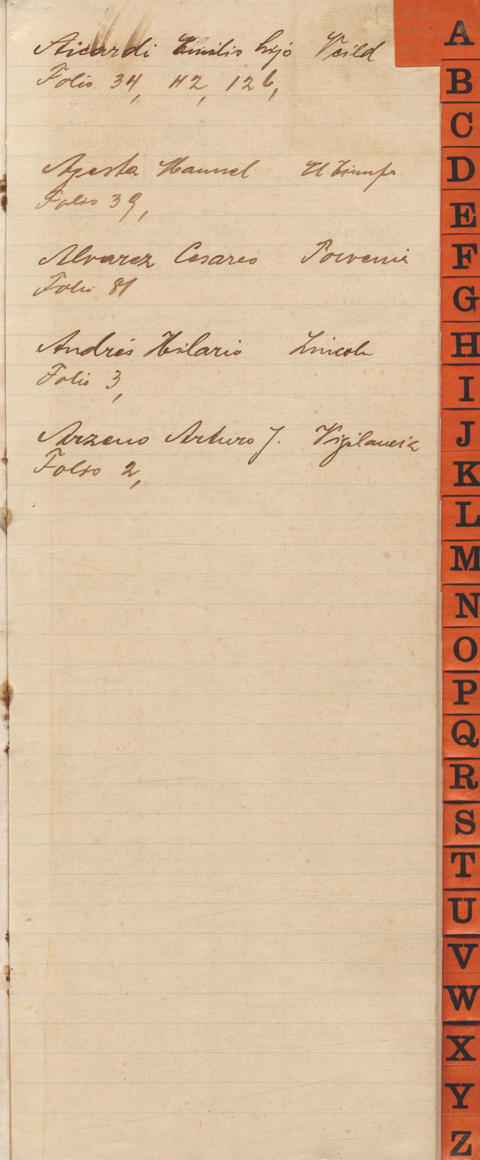 Aicardi Emilio hijo
Folio 34, 42, 126,
Agesta Manuel El Triunfo
Folio 39,
Alvarez Cesareo Porvenir
Folio 81
Andrés Hilario Lincoln
Folio 3,
Arzeno Arturo J. Vigilancia
Folio 2,
A
B
C
D
E
F
G
H
I
J
K
L
M
N
O
P
Q
R
S
T
U
V
W
X
Y
Z